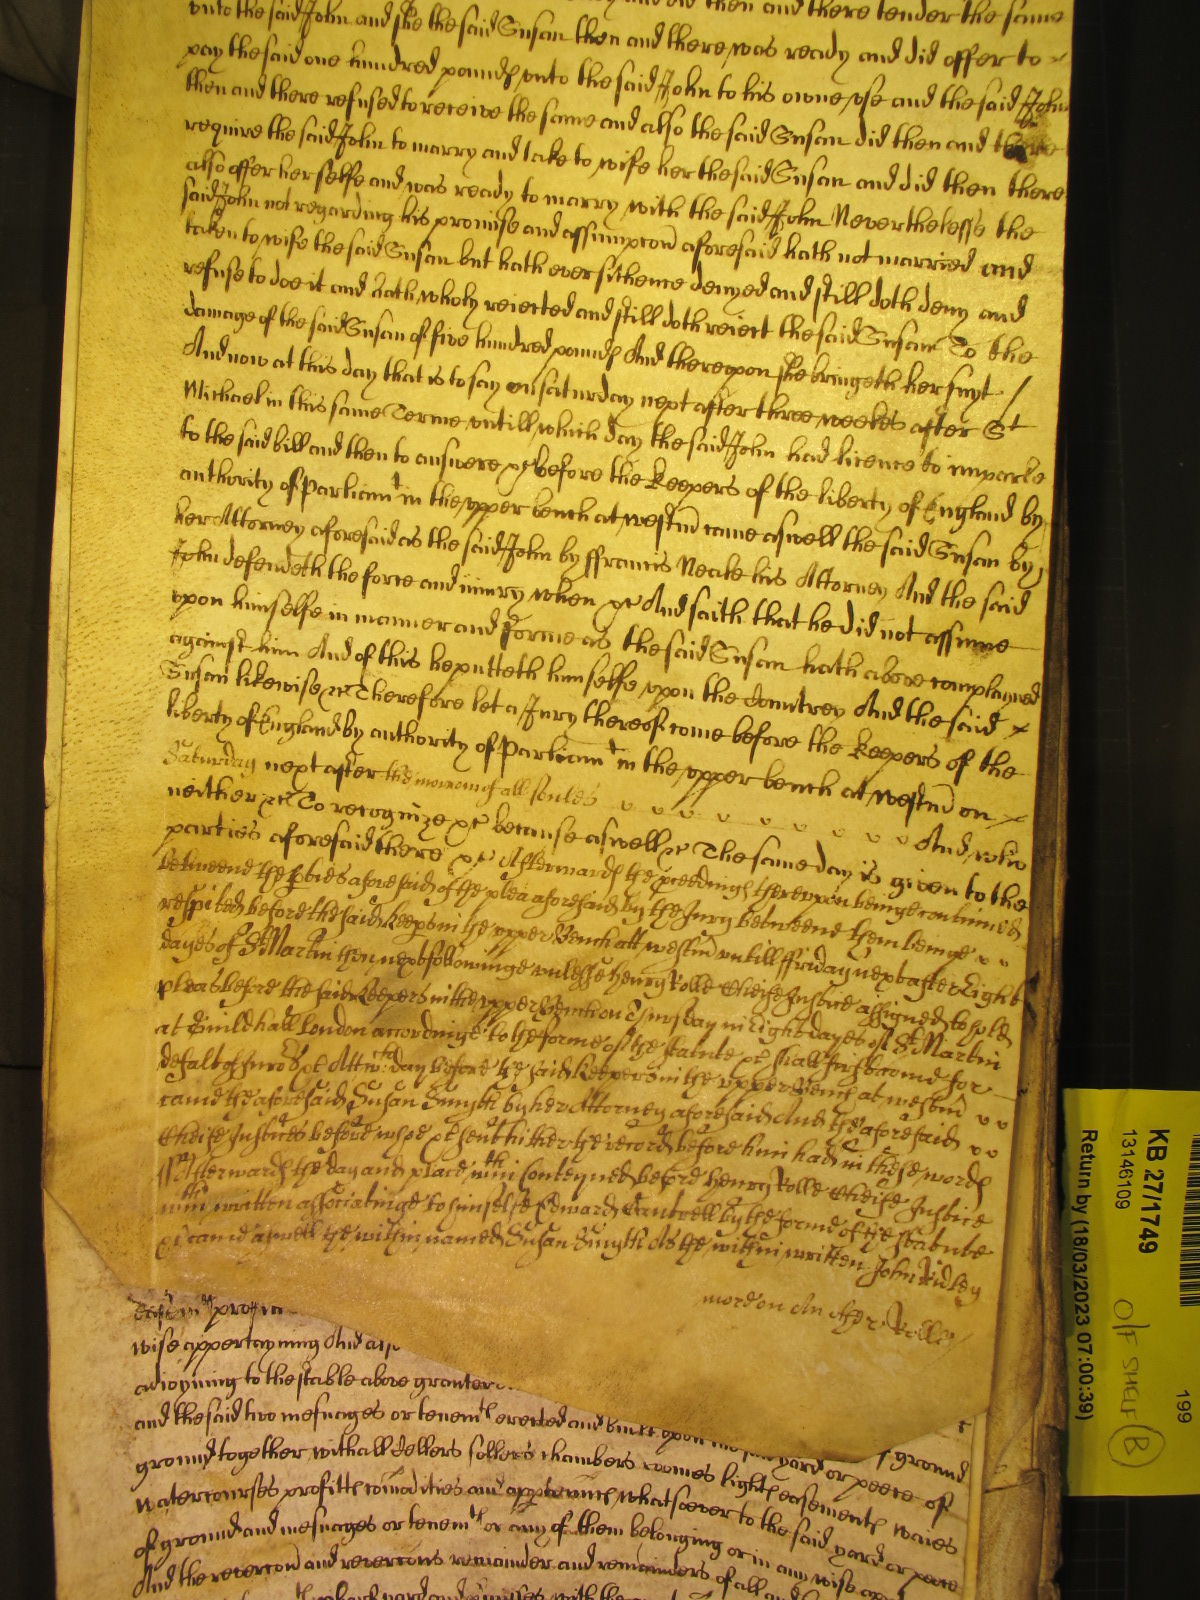 and did then and there tender the same
unto the said John and she the said Susan then and there was ready and did offer to
pay the said one hundred pounds unto the said John to his owne use and the said John
then and there refused to receive the same and also the said Susan did then and there
require the said John to marry and take to wife her the said Susan and did then there
also offer her selfe and was ready to marry with the said John Neverthelesse the
said John not regarding his promise and assumpcon aforesaid hath not married and
taken to wife the said Susan but hath ever sithence denyed and still doth deny and
refuse to doe it and hath wholy reiected and still doth reiect the said Susan To the
damage of the said Susan of five hundred pounds And thereupon she bringeth her suyt /
And now at this day that is to say on saturday next after three weekes after St
Michael in this same Terme untill which day the said John had licence to imparle
to the said bill and then to answere &c before the keepers of the liberty of England by
authority of Parliamt in the upper bench at westm came aswell the said Susan by
her Attorney aforesaid as the said John by ffrancis Neale his Attorney And the said
John defendeth the force and iniury when &c And saith that he did not assume
upon himselfe in manner and forme as the said Susan hath above complayned
against him And of this he putteth himselfe upon the Countrey And the said
Susan likewise &c Therefore let a Jury thereof come before the keepers of the
liberty of England by authority of Parliamt in the upper bench at westm on
Saturday next after the morrow of all soules And who
neither &c To recognize &c because aswell &c The same day is given to the
parties aforesaid there &c Afterwards the pceedings thereupon beinge continued
betweene the pties aforesaid of the plea aforesaid by the Jury betweene them beinge
respited before the said keepers in the upper Bench att westm untill ffriday next after Eight
dayes of St Martin then next followinge unlesse Henry Rolle Cheife Justice assigned to hold
pleas before the said Keepers in the upper Bench on Thursday in Eight dayes of St Martin
at Guildhall London accordinge to the forme of the statute &c shall first come for
defalt of Jurors &c Att wch day before the said keepers in the upper Bench at westm
came the aforesaid Susan Smyth by her Attorney aforesaid And the aforesaid
Cheife Justices before whoe &c sent hither the record before him had in these words
ss Afterwards the day and place wthin conteyned before Henry Rolle Cheife Justice
wthin written associatinge to himselfe Edward Cantwell by the forme of the statute
&c came aswell the within named Susan Smyth As the within written John Ridley
more on An other Rolle
wise appertayning And also
adioyning to the stable above granted
and the said two mesuages or tenemts erected and built upon yard or peece of ground
ground together with all Cellers sollers chambers roomes lights easements waies
watercourses profitts comodities and appurtences whatsoever to the said yard or peece
of ground and mesuages or tenemts or any of them belonging or in any wise
And the revercon and revercons remainder and remainders of all and
KB 27/1749
13146109
199
O/F SHELF B
Return by (18/03/2023 07:00:39)